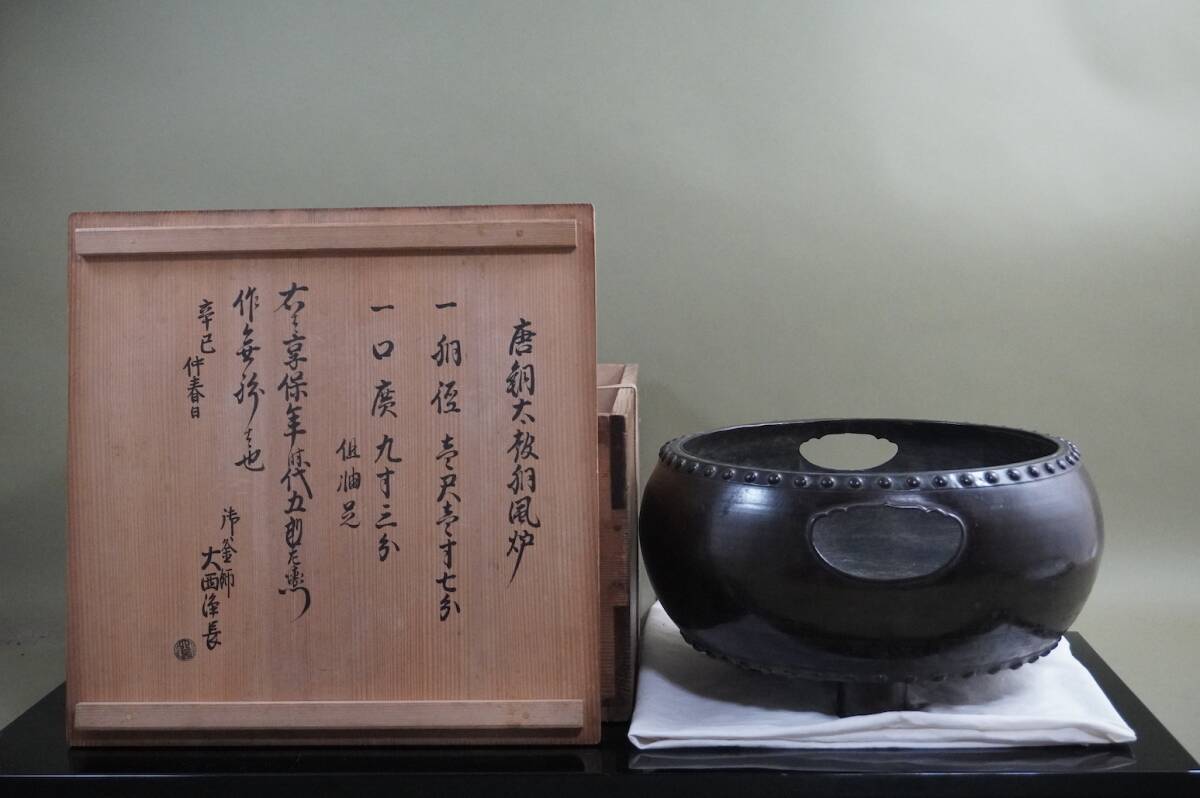 唐銅太鼓胴風炉
一 胴径 壱尺壱寸七分
一 口廣 九寸三分
但油足
右者享保年時代五郎左衛門
作無紛者也
辛巳
仲春日
御釜師
大西浄長